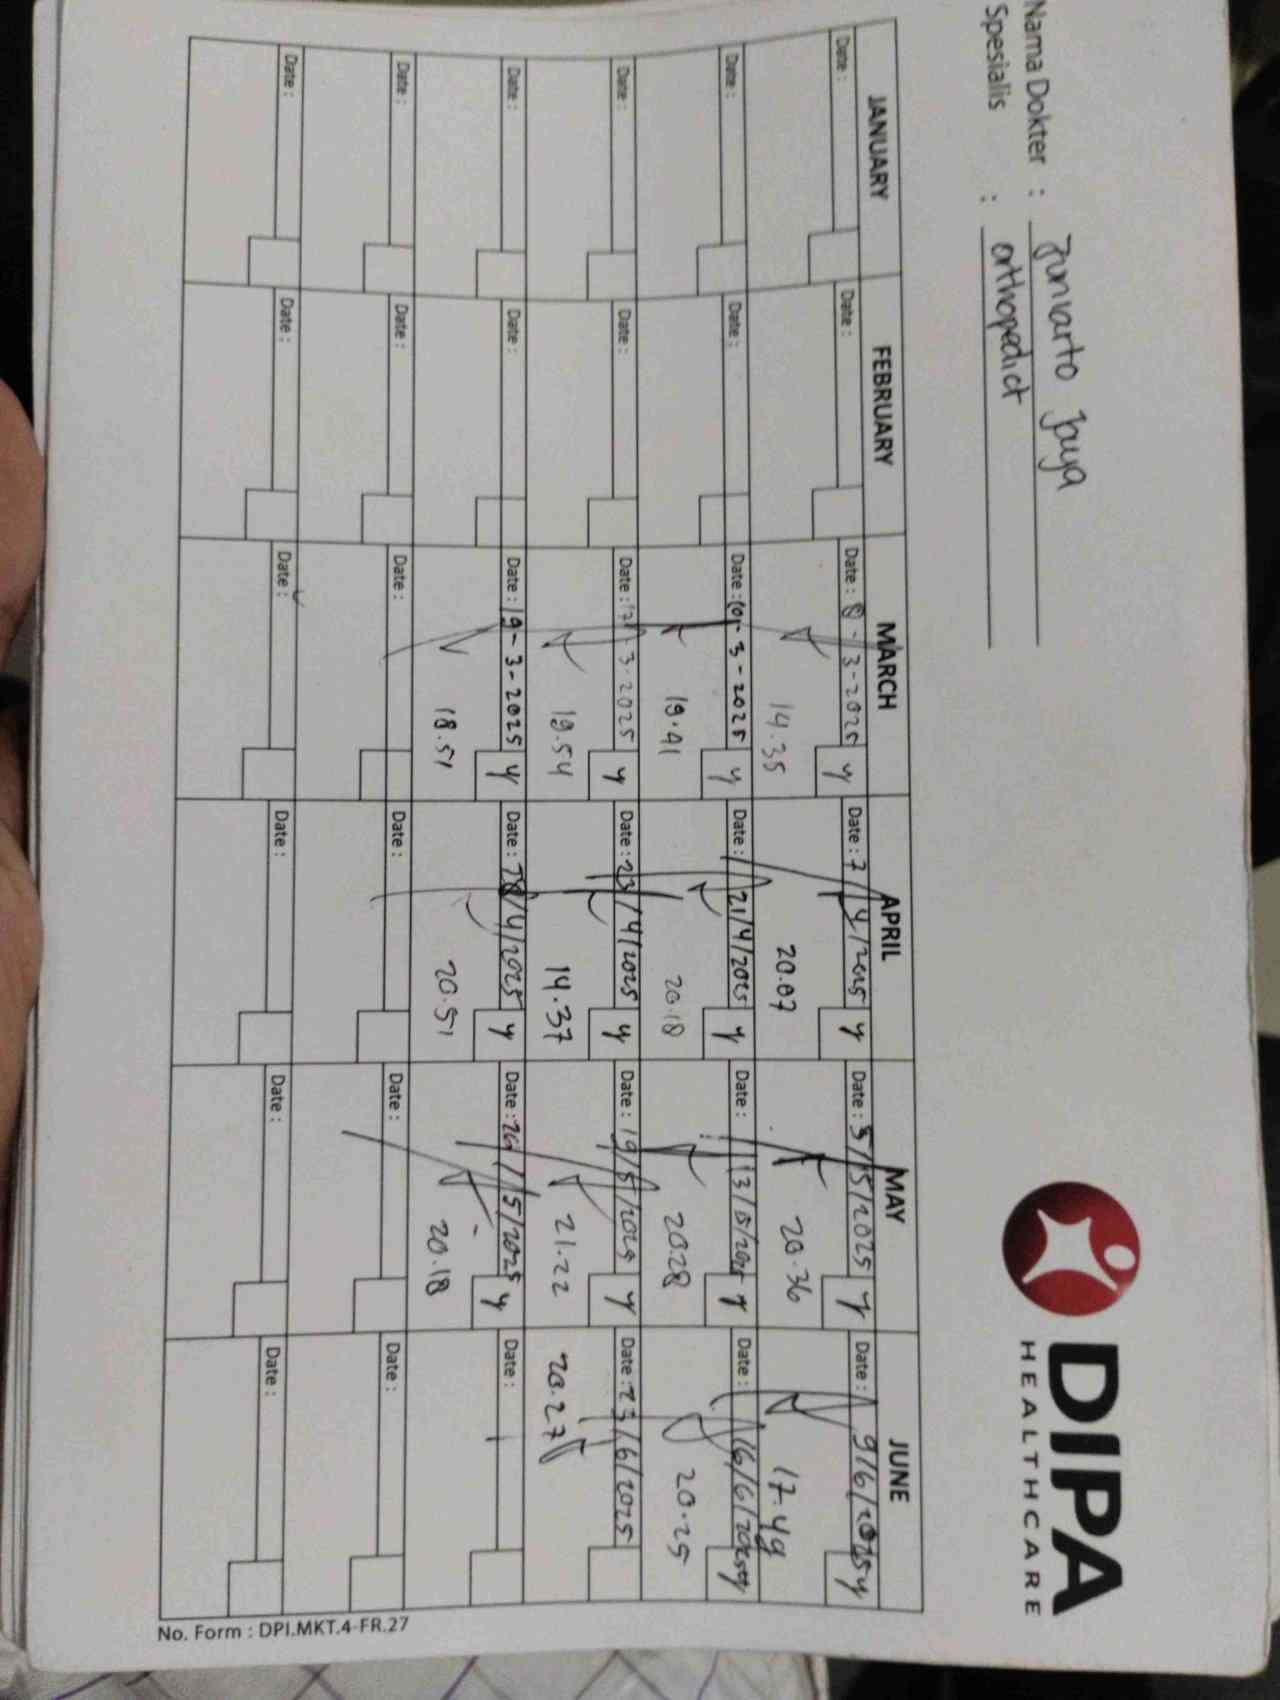 Nama Dokter : Junvarto Jaya
Spesialis : orthopedict
DIPA
HEALTHCARE
JANUARY FEBRUARY MARCH APRIL MAY JUNE
Date : Date : Date : 8-3-2025 y Date : 7/4/2025 y Date : 5/5/2025 y Date : 9/6/2025 y
14.35 20.07 20.36 17.49
Date : Date : Date : 10-3-2025 y Date : 21/4/2025 y Date : 13/5/2025 y Date : 16/6/2025 y
19.41 20.18 20.28 20.25
Date : Date : Date : 17-3-2025 y Date : 23/4/2025 y Date : 19/5/2025 y Date : 23/6/2025
19.54 14.37 21.22 20.27
Date : Date : Date : 19-3-2025 y Date : 28/4/2025 y Date : 26/5/2025 y Date :
18.51 20.51 20.18
Date : Date : Date : Date : Date : Date :
Date : Date : Date : Date : Date : Date :
No. Form : DPI.MKT.4-FR.27